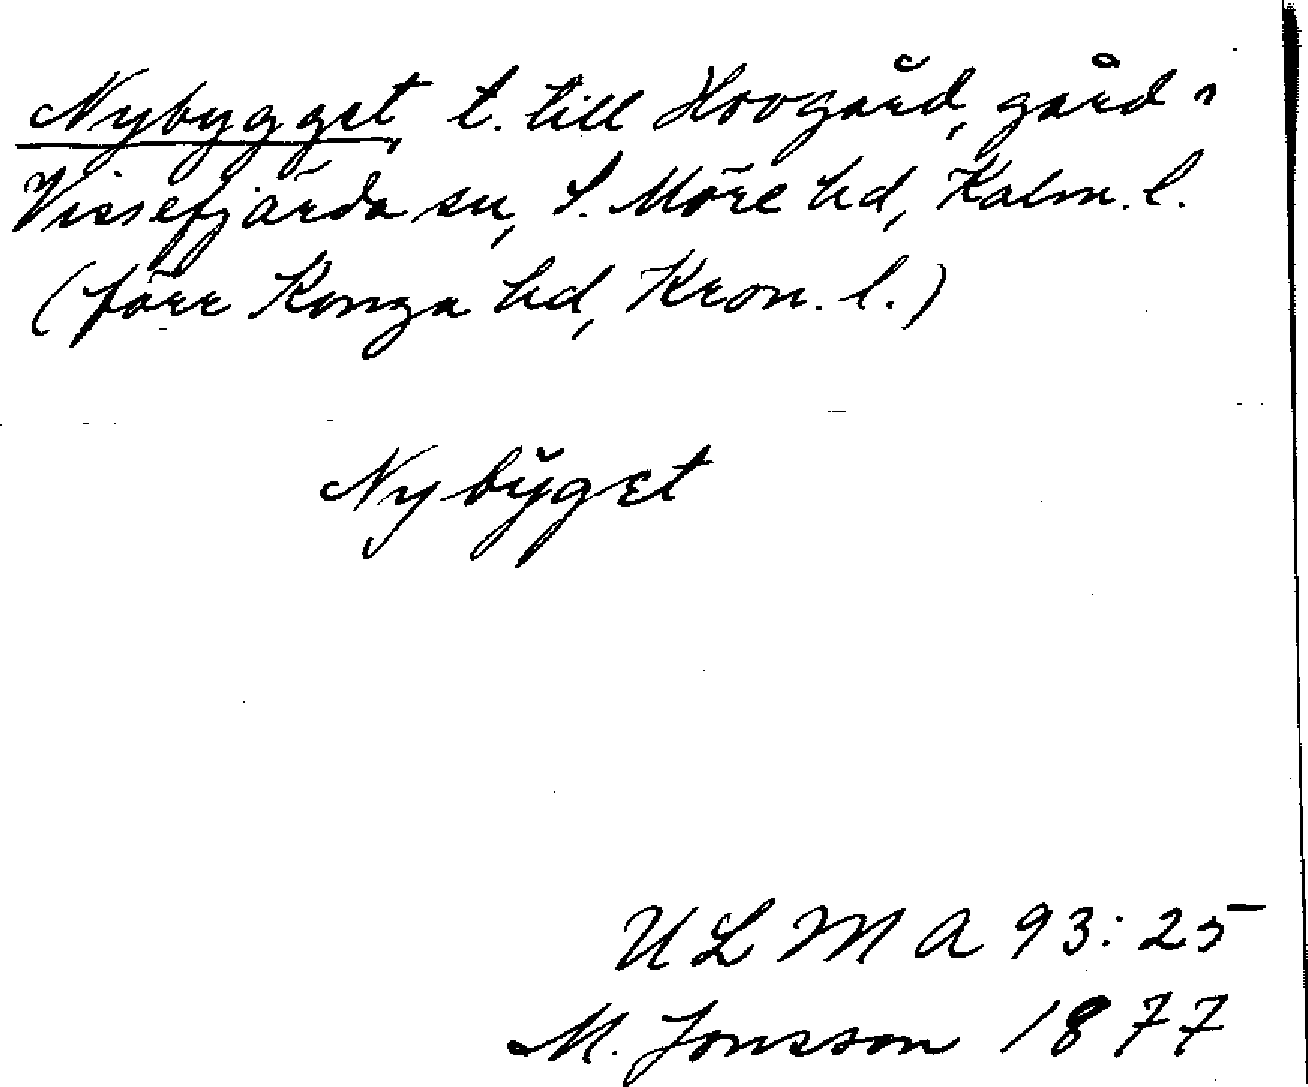 Nybygget, t. till Hovgård, gård i
Vissefjärda sn, S. Möre hd, Kalm. l.
(förr Konga hd, Kron. l.)
Nybўget
ULMA 93:25
M. Jonsson 1877